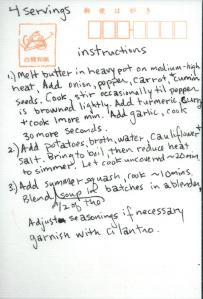 4 servings
郵便はがき
instructions
1.) Melt butter in heavy pot on medium-high
heat, Add onion, pepper, carrot + cumin
seeds. Cook, stir occasionally til pepper
is browned lightly. Add turmeric, curry
+ cook 1 more min. Add garlic, cook
30 more seconds.
2) Add potatoes, broth, water, cauliflower +
salt. Bring to boil, then reduce heat
to simmer. Let cook uncovered ~20min
3) Add summer squash, cook ~10mins.
Blend soup in batches in a blender,
1/2 of the
Adjust seasonings if necessary
garnish with cilantro.